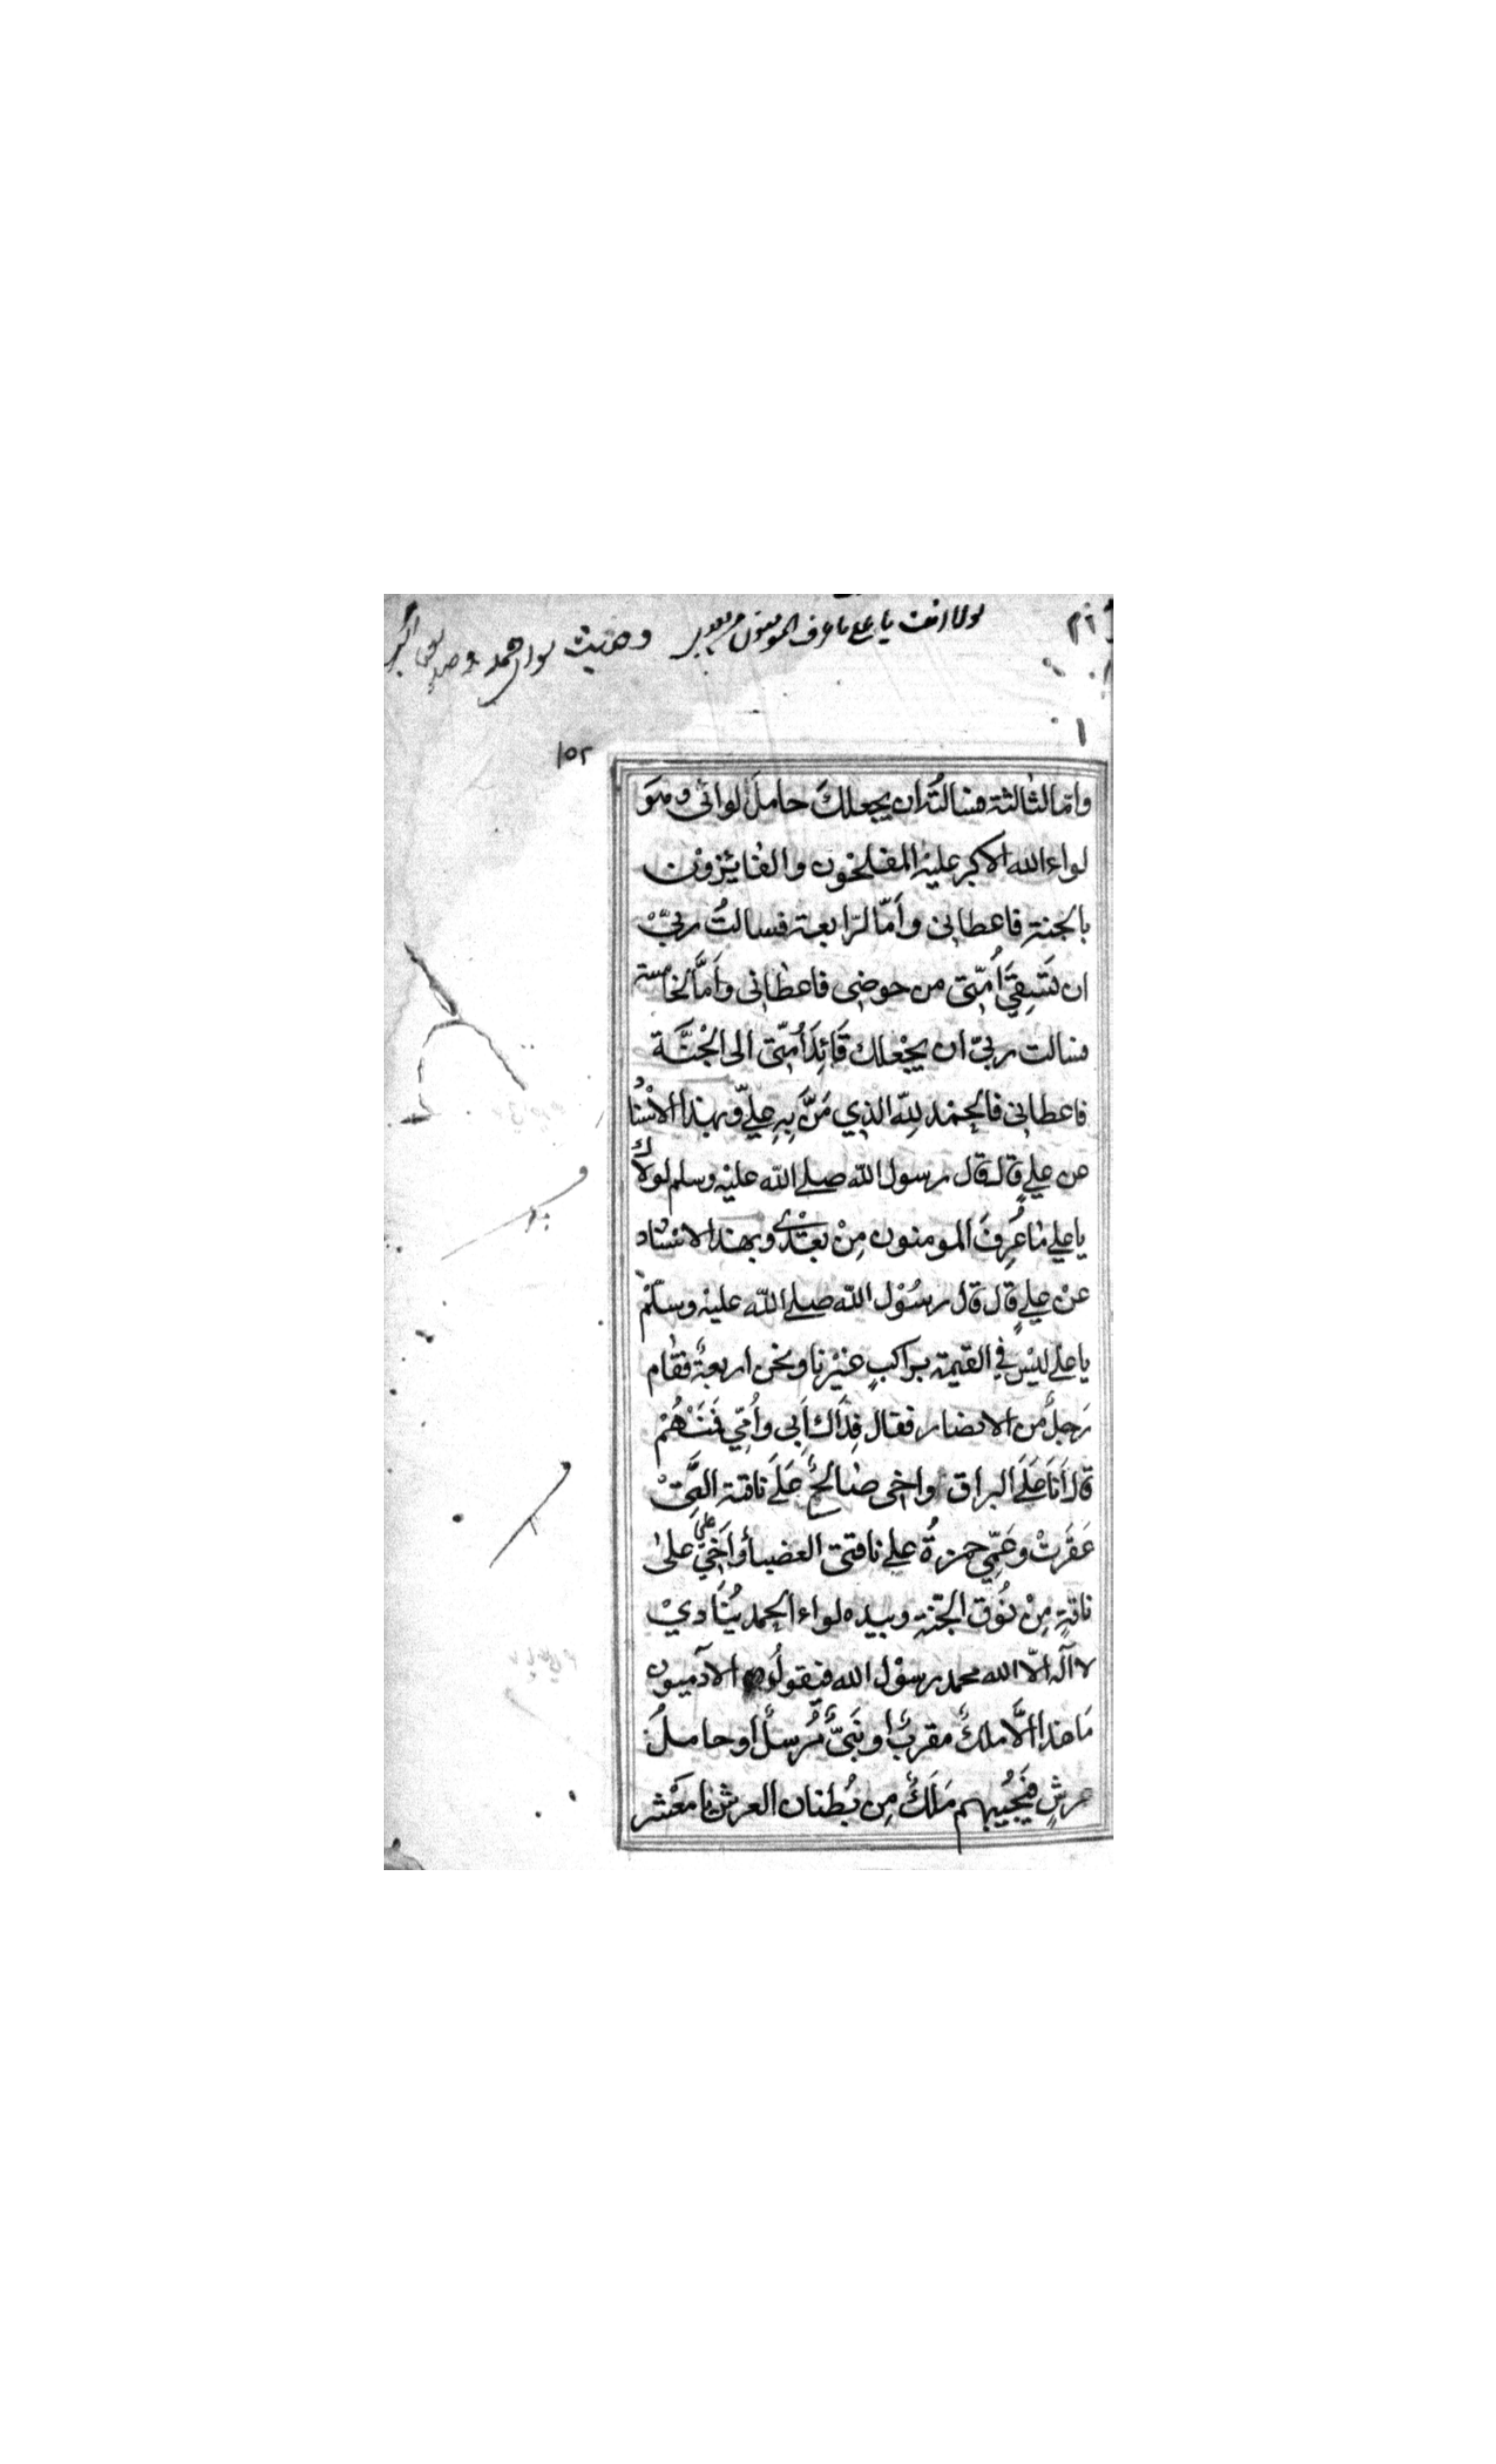 لولا انت يا علي ما عرف المومنون من بعدي وحديث لواء الحمد و
۱۵۲
واما الثالثة فسالتُ ان يجعلكَ حاملَ لوائى وهو
لواء الله الاكبر عليه المفلحون والفايزون
بالجنة فاعطانى وأمّا الرّابعة فسالتُ ربّيْ
ان تَسقِيَ أُمّتى من حوضى فاعطانى وأمَّا الخامسة
فسالت ربيّ ان يجْعلك قَائِدَ أُمّتى الى الجْنَّة
فاعطانى فالحمد لِلّه الذِي مَنَّ بِهِ عليّ وبهذا الاسْنا
عن عليٍ قال قال رسول الله صلے الله عليْه وسلم لولاك
يا علي مٰا عُرِفَ المومنون مِنْ بعْدي وبهذا الاسْنٰاد
عنْ عليٍ قال قال رسُوْل الله صلے الله عليْه وسلّمْ
يا علے ليْس في القيمة براكبٍ غيْرنا ونحن اربعةٌ فقٰام
رَجلٌ من الانصار فقال فِدَاك أَبى وأُمّي فَمَنْ هُمْ
قال أنَا عَلَى البراق واخى صٰالحٌ عَلَے ناقة الَّتِىْ
عَقَرتْ وعَمّي حمزةُ علے ناقتى العضبٰا وأخيْ علي علىٰ
ناقةٍ مِنْ نُوْق الجنّة وبيده لواء الحمد يُنَاديْ
لا اله الّا الله محمد رسوْل الله فيقولُ الآدميون
مَا هذا الّا ملكٌ مقربٌ أو نَبىٌّ مُرسلٌ او حاملُ
عرشٍ فيُجيْبهم مَلَكٌ مِن بُطنان العرش يا مَعْشر